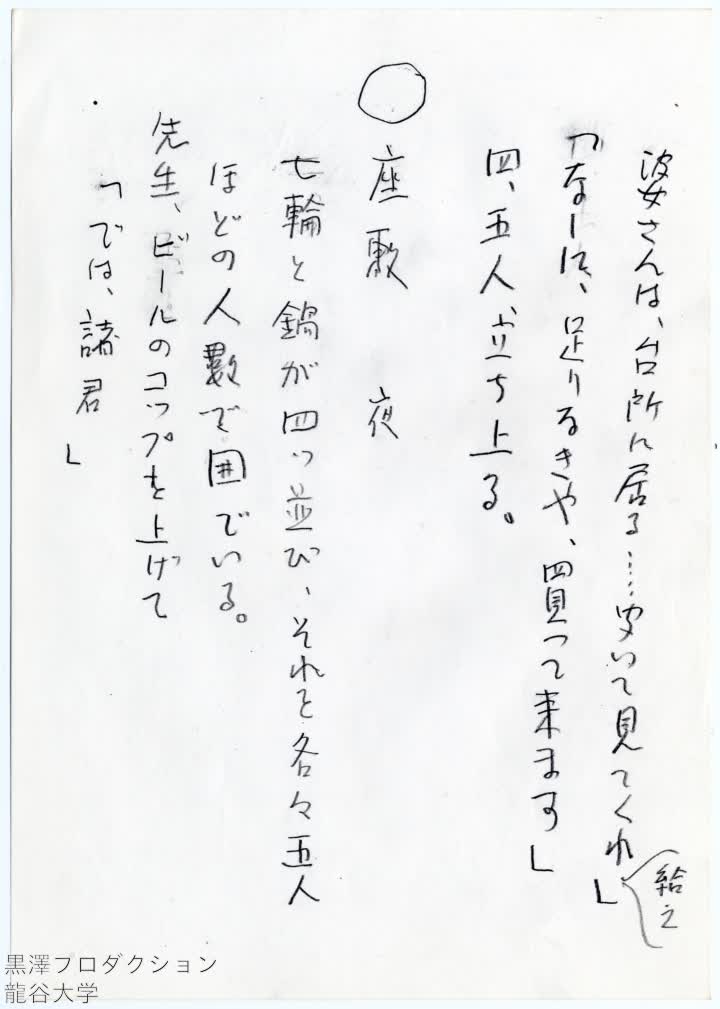 婆さんは、台所に居る…… 聞いて見てくれ」
給え
「なーに、足りなきや、買って来ます」
四、五人、立ち上る。
○座敷　夜
七輪と鍋が四つ並び、それを各々五人
ほどの人数で囲でいる。
先生、ビールのコップを上げて
「では、諸君」
黒澤プロダクション
龍谷大学